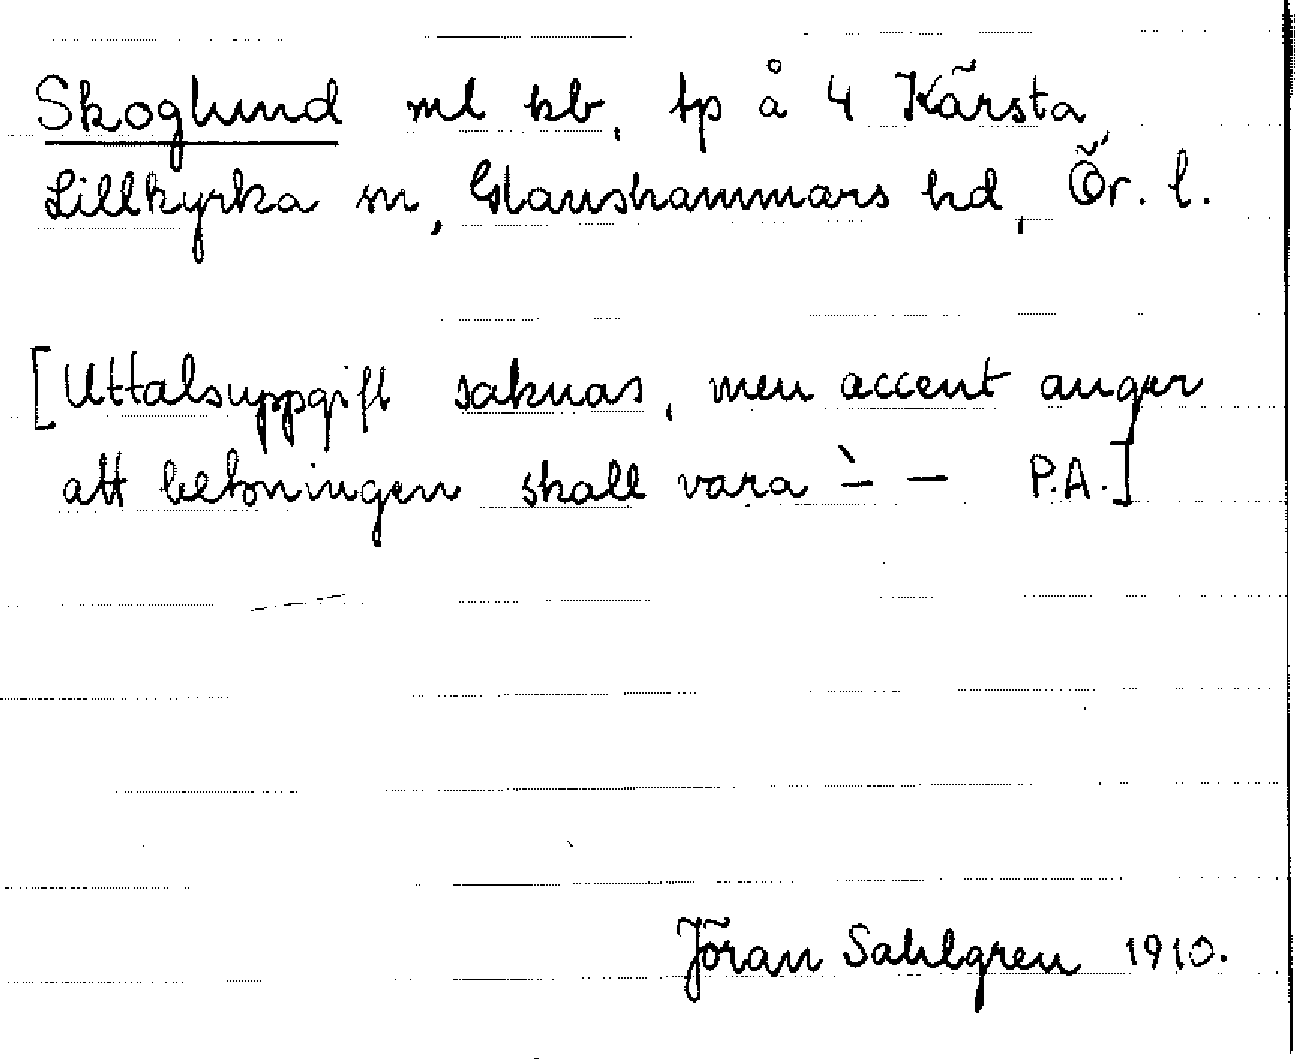 Skoglund ml kb, tp å 4 Kärsta
Lillkyrka sn, Glanshammars hd, Ör. l.
[Uttalsuppgift saknas, men accent anger
att betoningen skall vara ̀– – P.A.]
Jöran Sahlgren 1910.